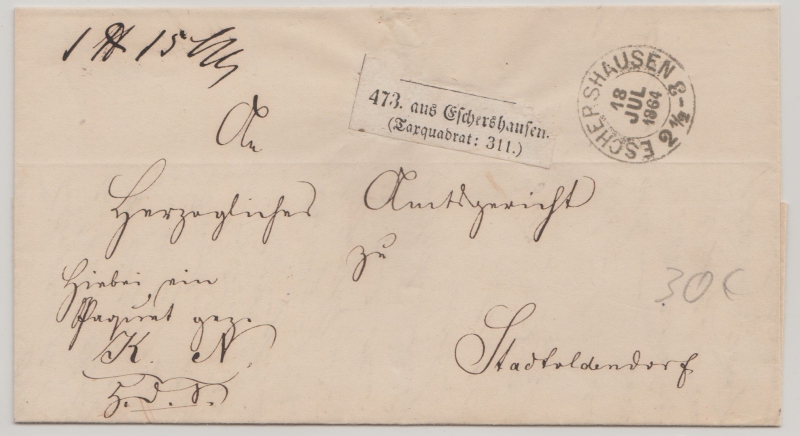 1 ℔ 15
473. aus Eschershausen.
(Taxquadrat: 311.)
ESCHERSHAUSEN
18
JUL
1864
2½-3
An
Herzogliches Amtsgericht
zu
Stadtoldendorf
Hiebei ein
Paquet gez.
K. N.
H. d. S.
30 €